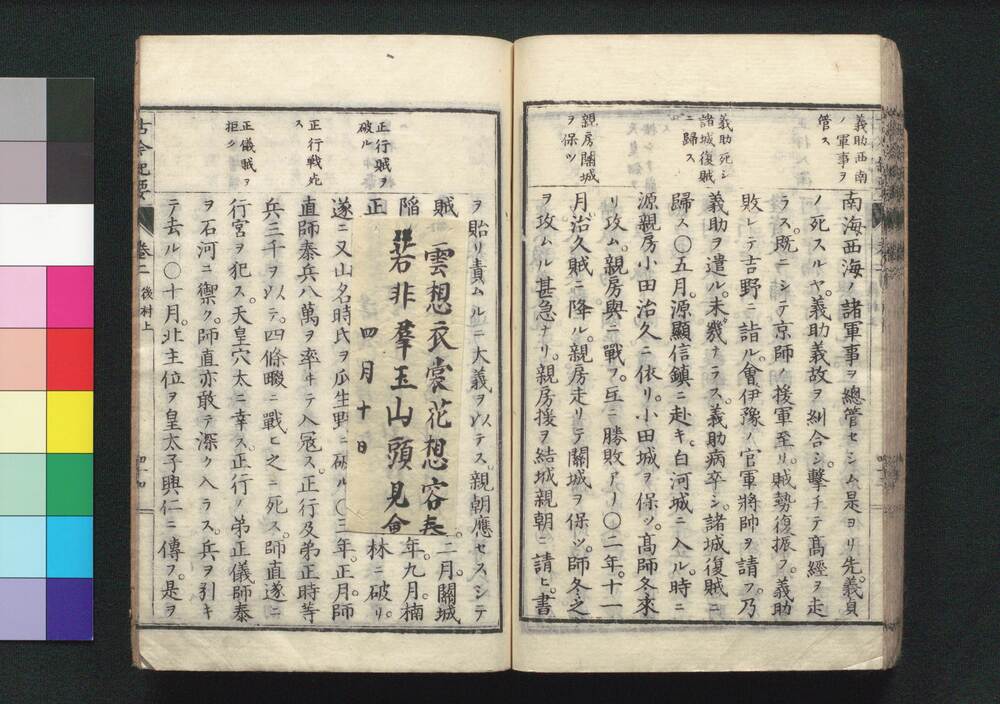 義助西南
ノ軍事ヲ
管ス
義助死シ
諸城復賊
ニ歸ス
親房關城
ヲ保ツ
南海西海ノ諸軍事ヲ總管セシム是ヨリ先。義貞
ノ死スルヤ。義助義故ヲ糾合シ。擊チテ高經ヲ走
ラス。既ニシテ京師ノ援軍至リ。賊勢復振フ。義助
敗レテ吉野ニ詣ル。會伊豫ノ官軍將帥ヲ請フ。乃
義助ヲ遣ル。未幾ナラス。義助病卒シ。諸城復賊ニ
歸ス〇五月。源顯信鎮ニ赴キ。白河城ニ入ル。時ニ
源親房小田治久ニ依リ。小田城ヲ保ツ。高師冬來
リ攻ム。親房與ニ戰フ。互ニ勝敗アリ〇二年。十一
月。治久賊ニ降ル。親房走リテ關城ヲ保ツ。師冬之
ヲ攻ムル甚急ナリ。親房援ヲ結城親朝ニ請ヒ。書
正行賊ヲ
破ル
正行戰死
ス
正儀賊ヲ
拒ク
ヲ貽リ責ムルニ大義ヲ以テス。親朝應セスシテ
賊
二月關城
陷
年。九月。楠
正
林ニ破リ。
雲想衣裳花想容
若非羣玉山頭見會
四月十日
遂ニ又山名時氏ヲ瓜生野ニ破ル〇三年。正月。師
直師泰兵八萬ヲ率ヰテ入寇ス。正行及弟正時等
兵三千ヲ以テ。四條畷ニ戰ヒ之ニ死ス。師直遂ニ
行宮ヲ犯ス。天皇穴太ニ幸ス。正行ノ弟正儀師泰
ヲ石河ニ禦ク。師直亦敢テ深ク入ラス。兵ヲ引キ
テ去ル〇十月。北主位ヲ皇太子興仁ニ傳フ。是ヲ
古今紀要
卷二
後村上
四十四